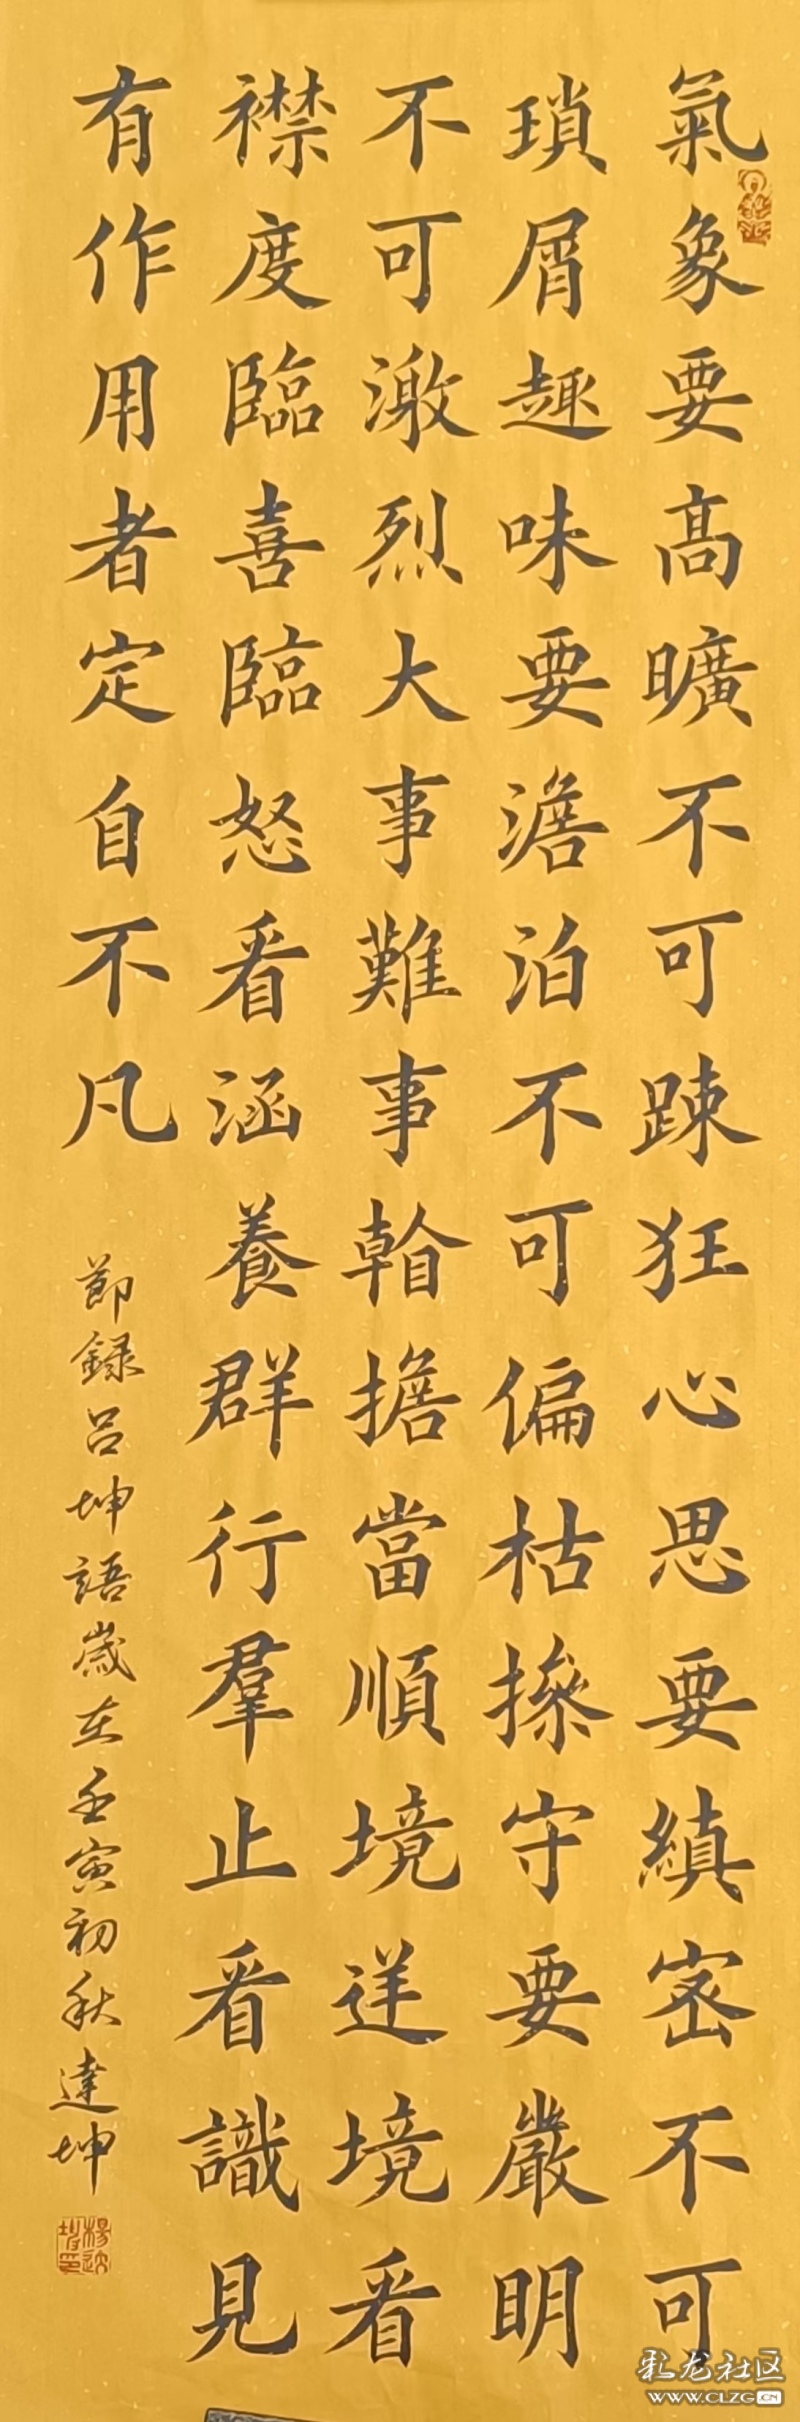 氣象要髙曠不可踈狂心思要縝密不可
瑣屑趣味要澹泊不可偏枯操守要嚴明
不可激烈大事難事看擔當順境逆境看
襟度臨喜臨怒看涵養群行羣止看識見
有作用者定自不凡
節録吕坤語歲在壬寅初秋達坤
彩龙社区
WWW.CLZG.CN